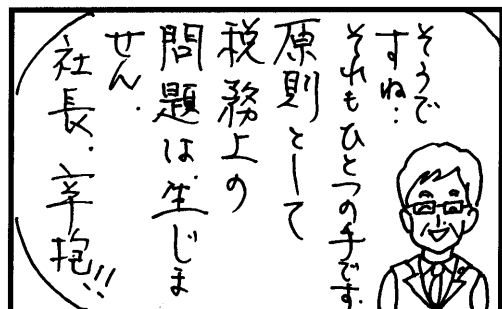 そうで
すね‥
それもひとつの手です.
原則として
税務上の
問題は.生じま
せん.
社長.辛抱!!